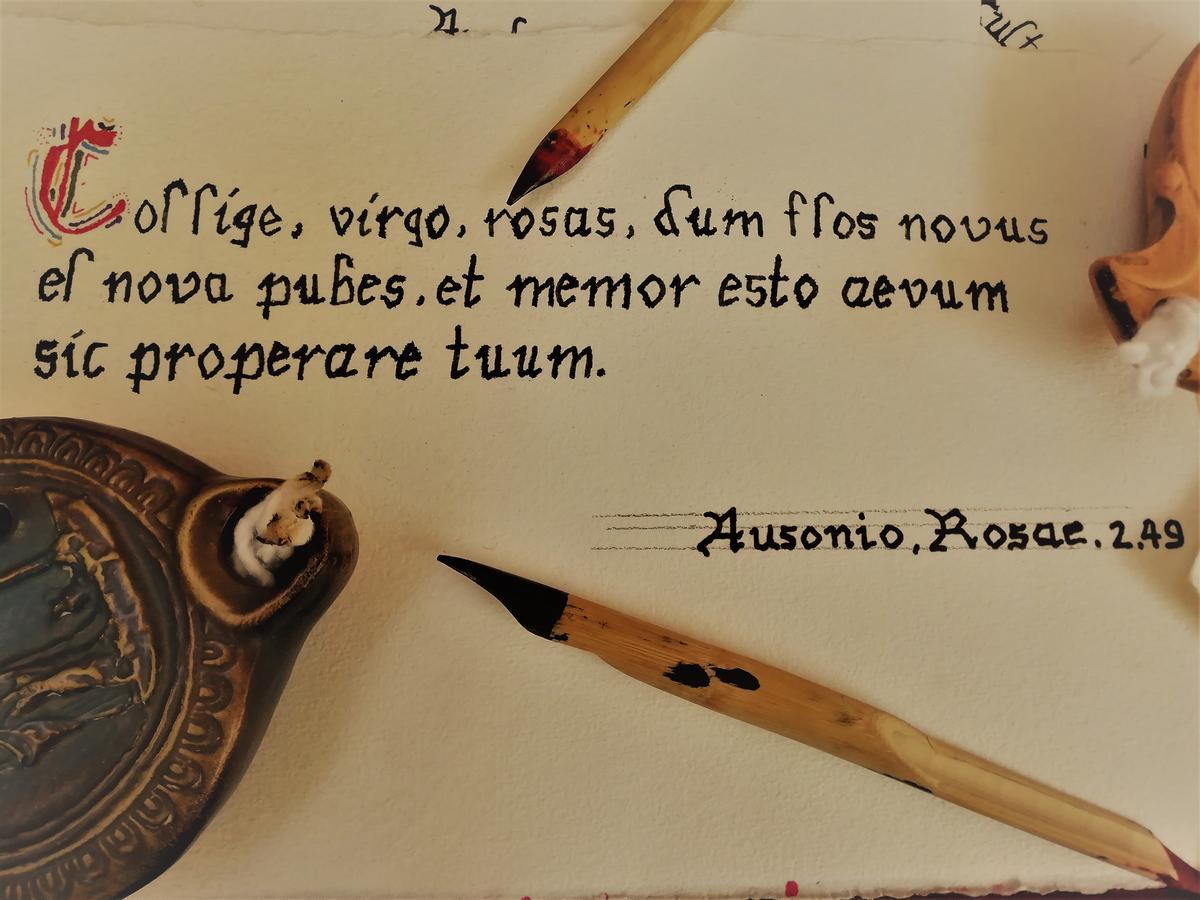 Collige, virgo, rosas, dum flos novus
el nova pubes, et memor esto aevum
sic properare tuum.
Ausonio, Rosae. 2.49